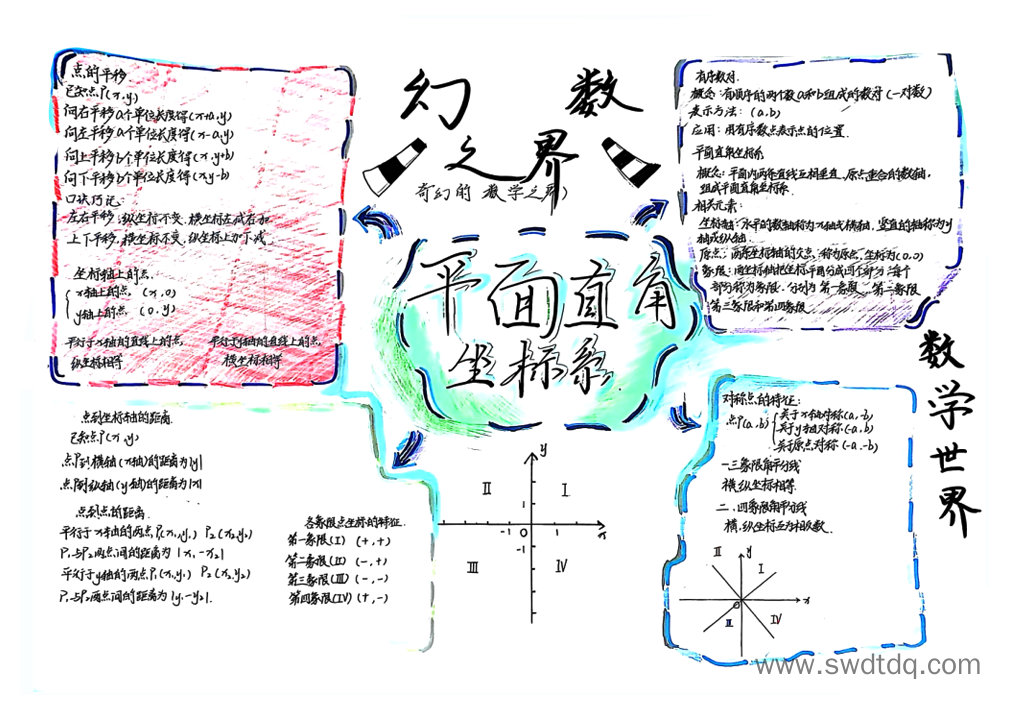 幻 数
之 界
奇幻的 数学之界)
平面直角
坐标系
点的平移
已知点P(x,y)
向右平移a个单位长度得(x+a,y)
向左平移a个单位长度得(x-a,y)
向上平移b个单位长度得(x,y+b)
向下平移b个单位长度得(x,y-b)
口诀巧记:
左右平移,纵坐标不变,横坐标左减右加
上下平移,横坐标不变,纵坐标上加下减。
坐标轴上的点.
x轴上的点, (x,0)
y轴上的点, (0,y)
平行于x轴的直线上的点, 平行于y轴的直线上的点,
纵坐标相等 横坐标相等
有序数对.
概念:有顺序的两个数a和b组成的数对(一对数)
表示方法: (a,b)
应用:用有序数点表示点的位置.
平面直角坐标系
概念:平面内两条直线互相垂直、原点重合的数轴,
组成平面直角坐标系.
相关元素:
坐标轴:水平的数轴称为x轴或横轴,竖直的轴称为y
轴或纵轴.
原点:两条坐标轴的交点,称为原点,坐标为(0,0)
象限:两坐标轴把坐标平面分成四个部分:每个
部分称为象限.分别为第一象限、第二象限
第三象限和第四象限
数学世界
点到坐标轴的距离.
已知点P(x,y)
点P到横轴(x轴)的距离为|y|
点P到纵轴(y轴)的距离为|x|
点到点的距离.
平行于x轴的两点P₁(x₁,y₁) P₂(x₂,y₂)
P₁与P₂两点间的距离为|x₁-x₂|
平行于y轴的两点P₁(x₁,y₁) P₂(x₂,y₂)
P₁与P₂两点间的距离为|y₁-y₂|.
各象限点坐标的特征.
第一象限(Ⅰ) (+,+)
第二象限(Ⅱ) (-,+)
第三象限(Ⅲ) (-,-)
第四象限(Ⅳ) (+,-)
y
Ⅱ Ⅰ
1
-1 0 1 x
-1
Ⅲ Ⅳ
对称点的特征:
点P(a,b)
关于x轴对称(a,-b)
关于y轴对称(-a,b)
关于原点对称(-a,-b)
一.三象限角平分线
横.纵坐标相等.
二、四象限角平分线
横.纵坐标互为相反数.
Ⅱ y Ⅰ
O x
Ⅲ Ⅳ
www.swdtdq.com